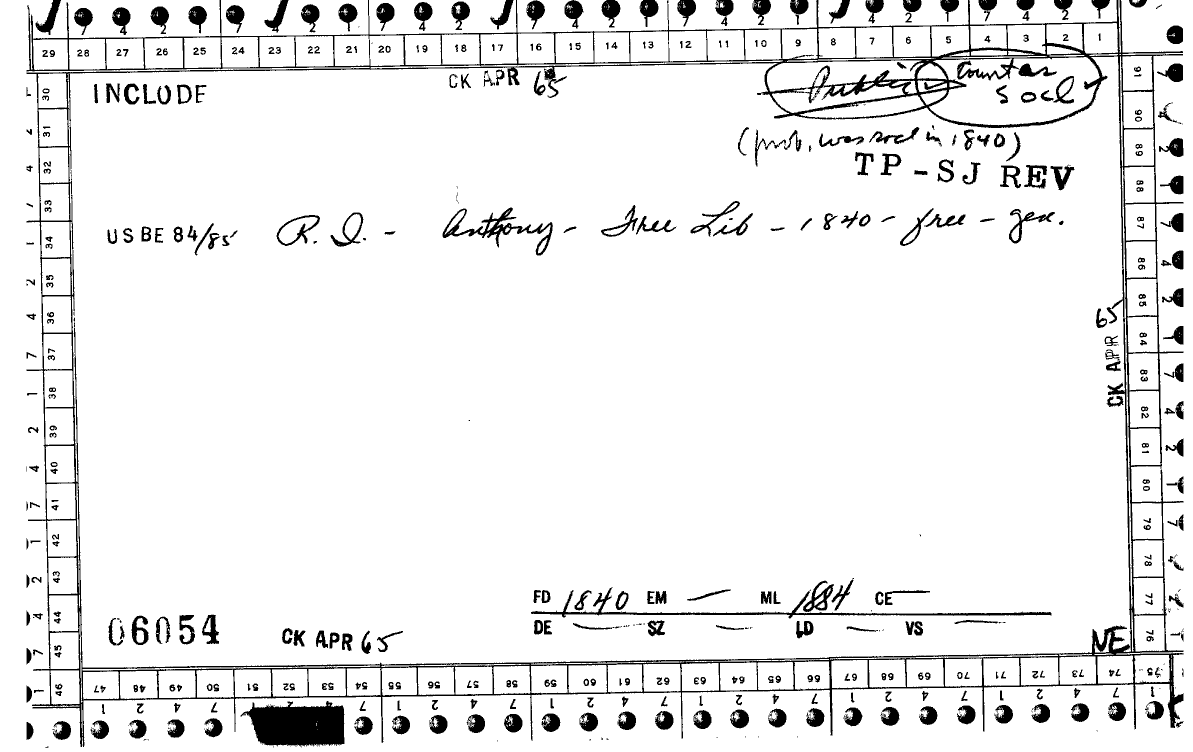 7 4 2 1 7 4 2 1 7 4 2 1 7 4 2 1 7 4 2 1
29 28 27 26 25 24 23 22 21 20 19 18 17 16 15 14 13 12 11 10 9 8 7 6 5 4 3 2 1
INCLUDE
CK APR 65
Public
Count as
Socl
(prob. was socl in 1840)
TP-SJ REV
USBE 84/85 R.I. - Anthony - Free Lib - 1840 - free - gen.
CK APR 65
FD 1840 EM — ML 1884 CE —
DE — SZ — LD — VS —
06054
CK APR 65
NE
30 31 32 33 34 35 36 37 38 39 40 41 42 43 44 45 46
91 90 89 88 87 86 85 84 83 82 81 80 79 78 77 76 75
47 48 49 50 51 52 53 54 55 56 57 58 59 60 61 62 63 64 65 66 67 68 69 70 71 72 73 74